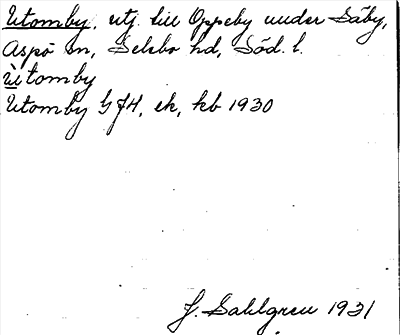 Utomby, utj. till Oppeby under Säby,
Aspö sn, Selebo hd, Söd. l.
ùtomby
Utomby GJH, ek, kb 1930
J. Sahlgren 1931